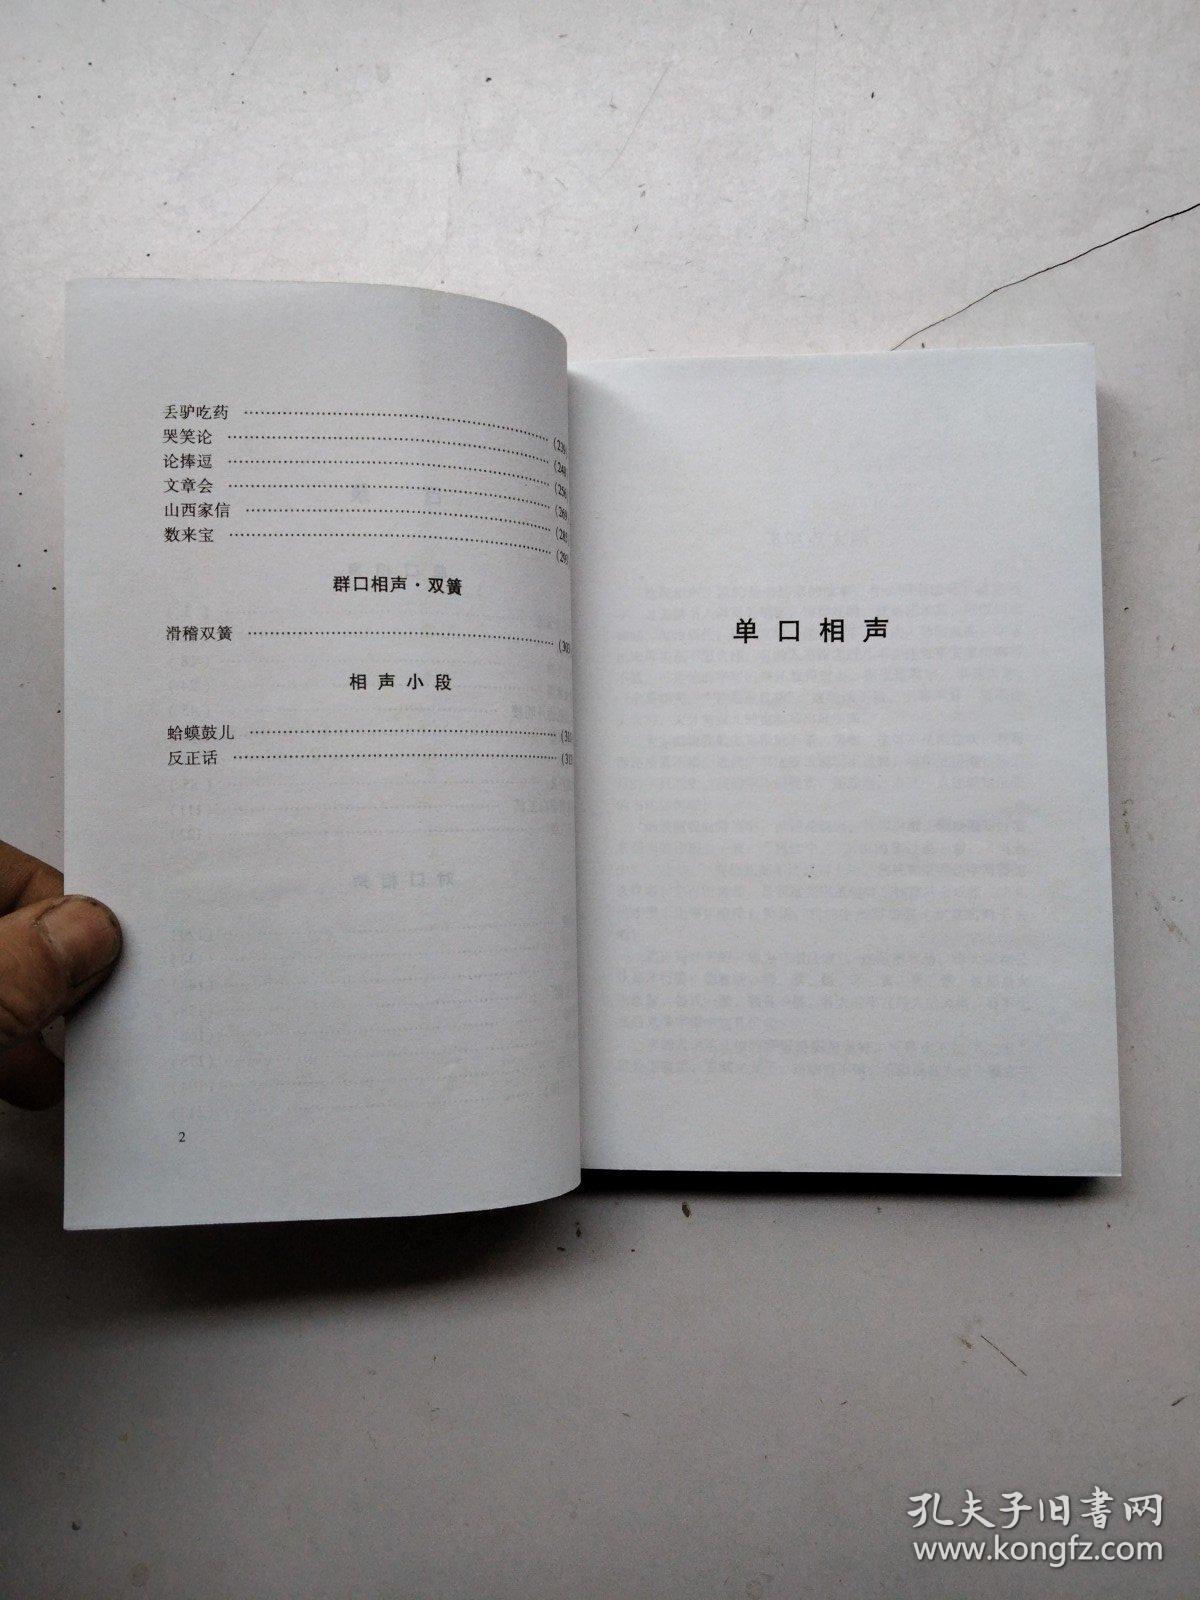 丢驴吃药 (239
哭笑论 (248
论捧逗 (256
文章会 (269
山西家信 (285
数来宝 (293
群口相声·双簧
滑稽双簧 (303
相声小段
蛤蟆鼓儿 (31
反正话 (31
2
单口相声
孔夫子旧书网
www.kongfz.com